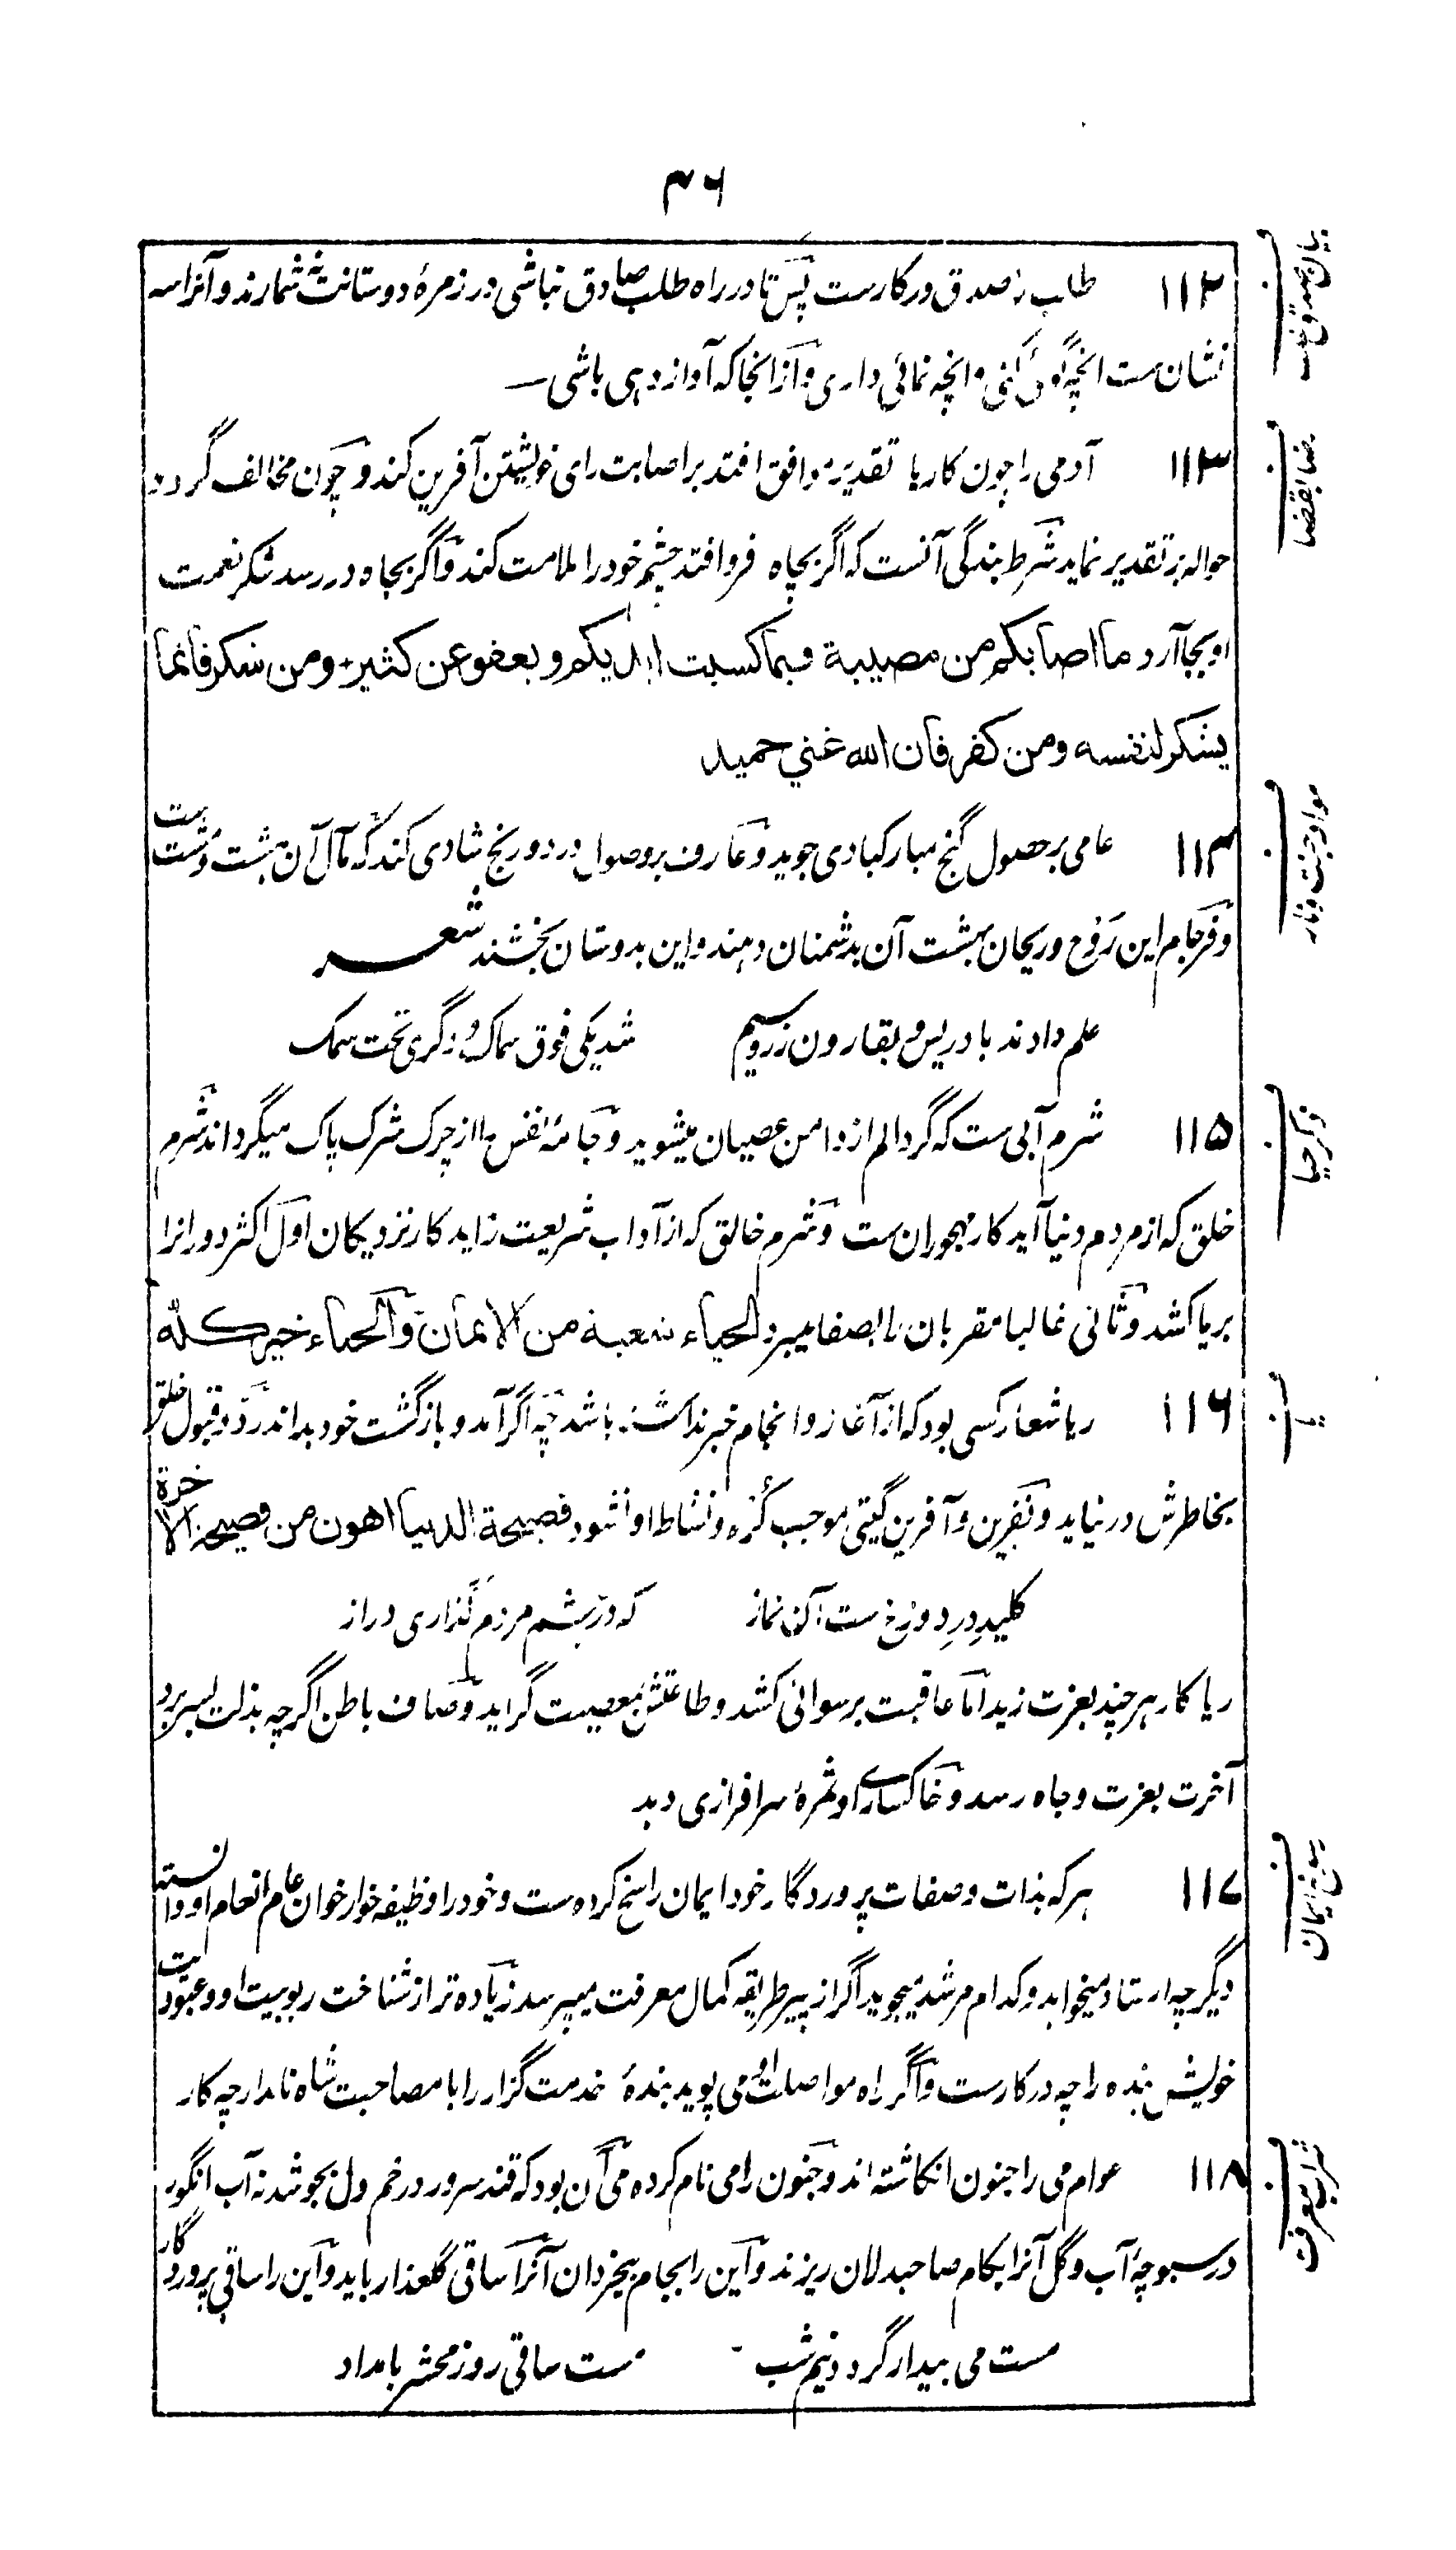 ۴۶
۱۱۲ طلب را صدق در کارست پس تا در راه طلب صادق نباشی در زمرهٔ دوستانت نه شمارند و آنرا سه
نشان ست انچه گوئی کنی و انچه نمائی داری و از انجا که آواز دهی باشی
۱۱۳ آدمی را چون کارها تقدیر موافق افتد بر اصابت رای خویشتن آفرین کند و چون مخالف گردد
حواله بر تقدیر نماید شرط بندگی آنست که اگر بچاه فرو افتد چشم خود را ملامت کند و اگر بجاه در رسد شکر نعمت
او بجا آرد ما اصابکم من مصیبة فبما کسبت ایدیکم و یعفو عن کثیر و من شکر فانما
یشکر لنفسه ومن کفر فان الله غني حمید
۱۱۴ عامی بر حصول گنج مبارکبادی جوید و عارف بر وصول درد و رنج شادی کند که مآل آن بهشت دشت ست
و فرجام این روح و ریحان بهشت آن بدشمنان دهند و این بدوستان بخشند شعر
علم دادند بادریس و بقارون زر و سیم شد یکی فوق سماک و دگری تحت سمک
۱۱۵ شرم آبی ست که گرد الم از دامن عصیان میشوید و جامهٔ نفس را از چرک شرک پاک میگرداند شرم
خلق که از مردم دنیا آید کار مهجوران ست و شرم خالق که از آداب شریعت زاید کار نزدیکان اول اکثر دورانرا
بریا کشد و ثانی غالبا مقربان را بصفا میبرد الحیاء شعبة من الایمان و الحیاء خیر کله
۱۱۶ ریا شعار کسی بود که از آغاز و انجام خبر نداشته باشد چه اگر آمد و بازگشت خود بداند رد و قبول خلق
بخاطرش در نیاید و نفرین و آفرین گیتی موجب کُره و نشاط او نشود فضیحة الدنیا اهون من فضیحة الاخرة
کلید در دوزخ ست آن نماز که در چشم مردم گذاری دراز
ریاکار هر چند بعزت زید اما عاقبت برسوائی کشد و طاعتش بمعصیت گراید و صاف باطن اگرچه بذلت بسر برد
آخرت بعزت و جاه رسد و خاکساری او ثمرهٔ سرافرازی دهد
۱۱۷ هر که بذات و صفات پروردگار خود ایمان راسخ کرده ست و خود را وظیفه خوار خوان عام انعام او دانسته
دیگر چه استاد میخواهد و کدام مرشد میجوید اگر از پیر طریقه کمال معرفت میپرسد زیاده تر از شناخت ربوبیت او و عبودیت
خویش بنده را چه در کارست و اگر راه مواصلت او می پوید بندهٔ خدمت گزار را با مصاحبت شاه نامدار چه کار
۱۱۸ عوام می را جنون انگاشته اند و جنون را می نام کرده می آن بود که قند سرور در خم دل بجوشد نه آب انگور
در سبوچهٔ آب و گل آنرا بکام صاحبدلان ریزند و این را بجام بیخردان آنرا ساقی گلعذار باید و این را ساقی پروردگار
مست می بیدار گردد نیم شب مست ساقی روز محشر بامداد
رضا بقضا
ذکر حیا
ریا
شراب معرفت